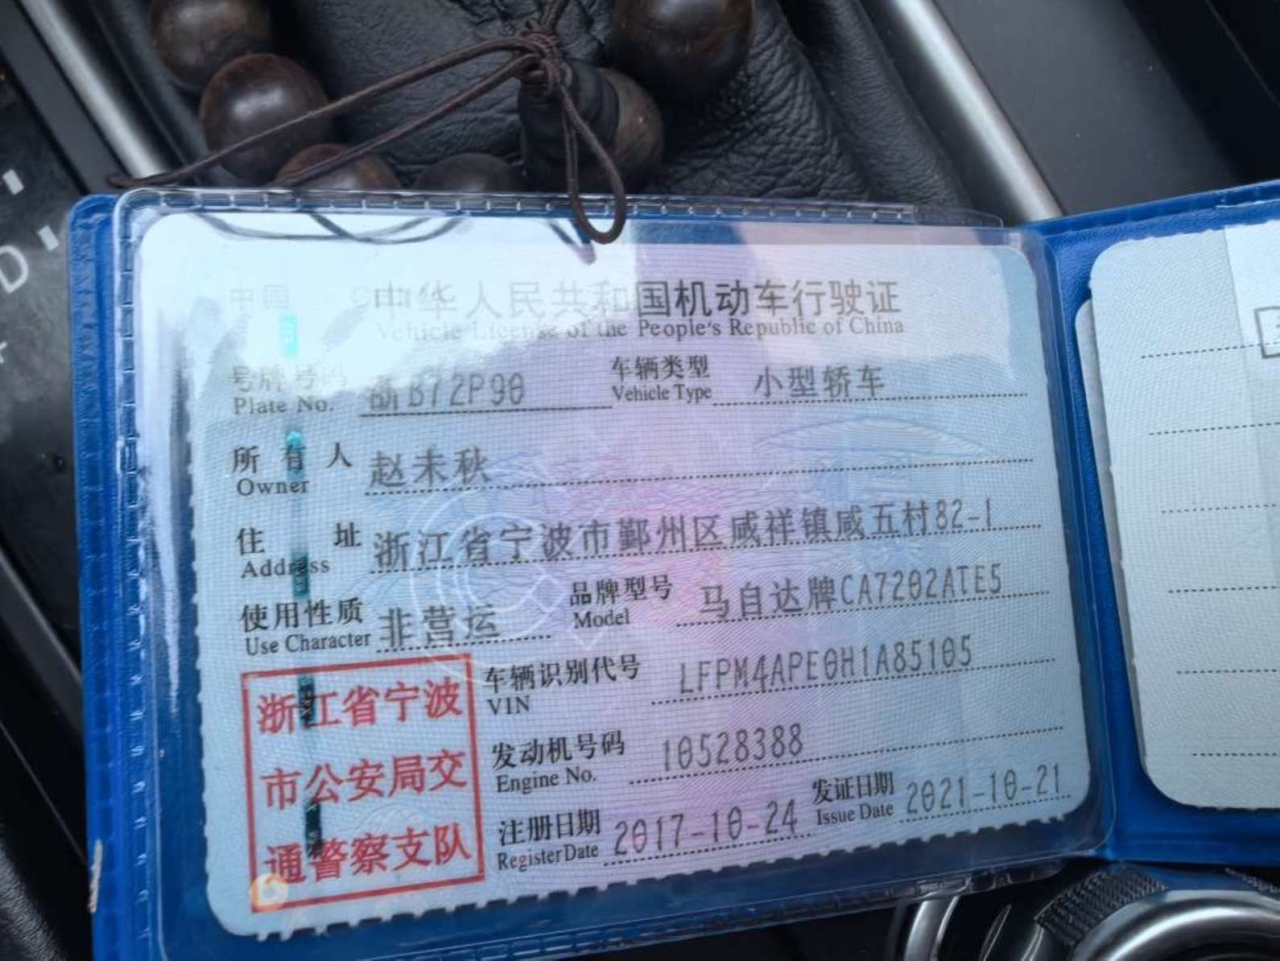 中华人民共和国机动车行驶证
Vehicle License of the People's Republic of China
号牌号码 浙B72P90 车辆类型 小型轿车
Plate No. Vehicle Type
所有人 赵未秋
Owner
住址 浙江省宁波市鄞州区咸祥镇咸五村82-1
Address
使用性质 非营运 品牌型号 马自达牌CA7202ATE5
Use Character Model
浙江省宁波
市公安局交
通警察支队
车辆识别代号 LFPM4APE0H1A85105
VIN
发动机号码 10528388
Engine No.
注册日期 2017-10-24 发证日期 2021-10-21
Register Date Issue Date